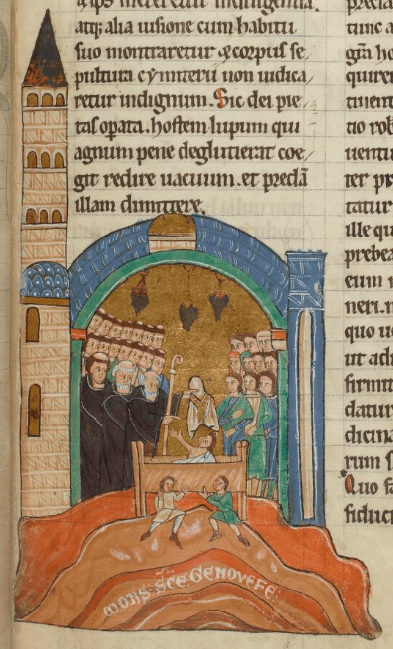 atq; alia uisione cum habitu
suo montraretur & corpus se
pultura cymiterii non iudica
retur indignum. Sic dei pie
tas opata. hostem lupum qui
agnum pene deglutierat coe
git redire uacuum. et predā
illam dimittere.
MONS SCE GENOVEFE
tunc a
grā ho
quirer
tinent
tio rob
uentu
ter pr
tatur
ille qu
preber
eum
neri. n
quo ue
ut adi
firmit
datur
dicina
rum s
Quo fa
fiduci